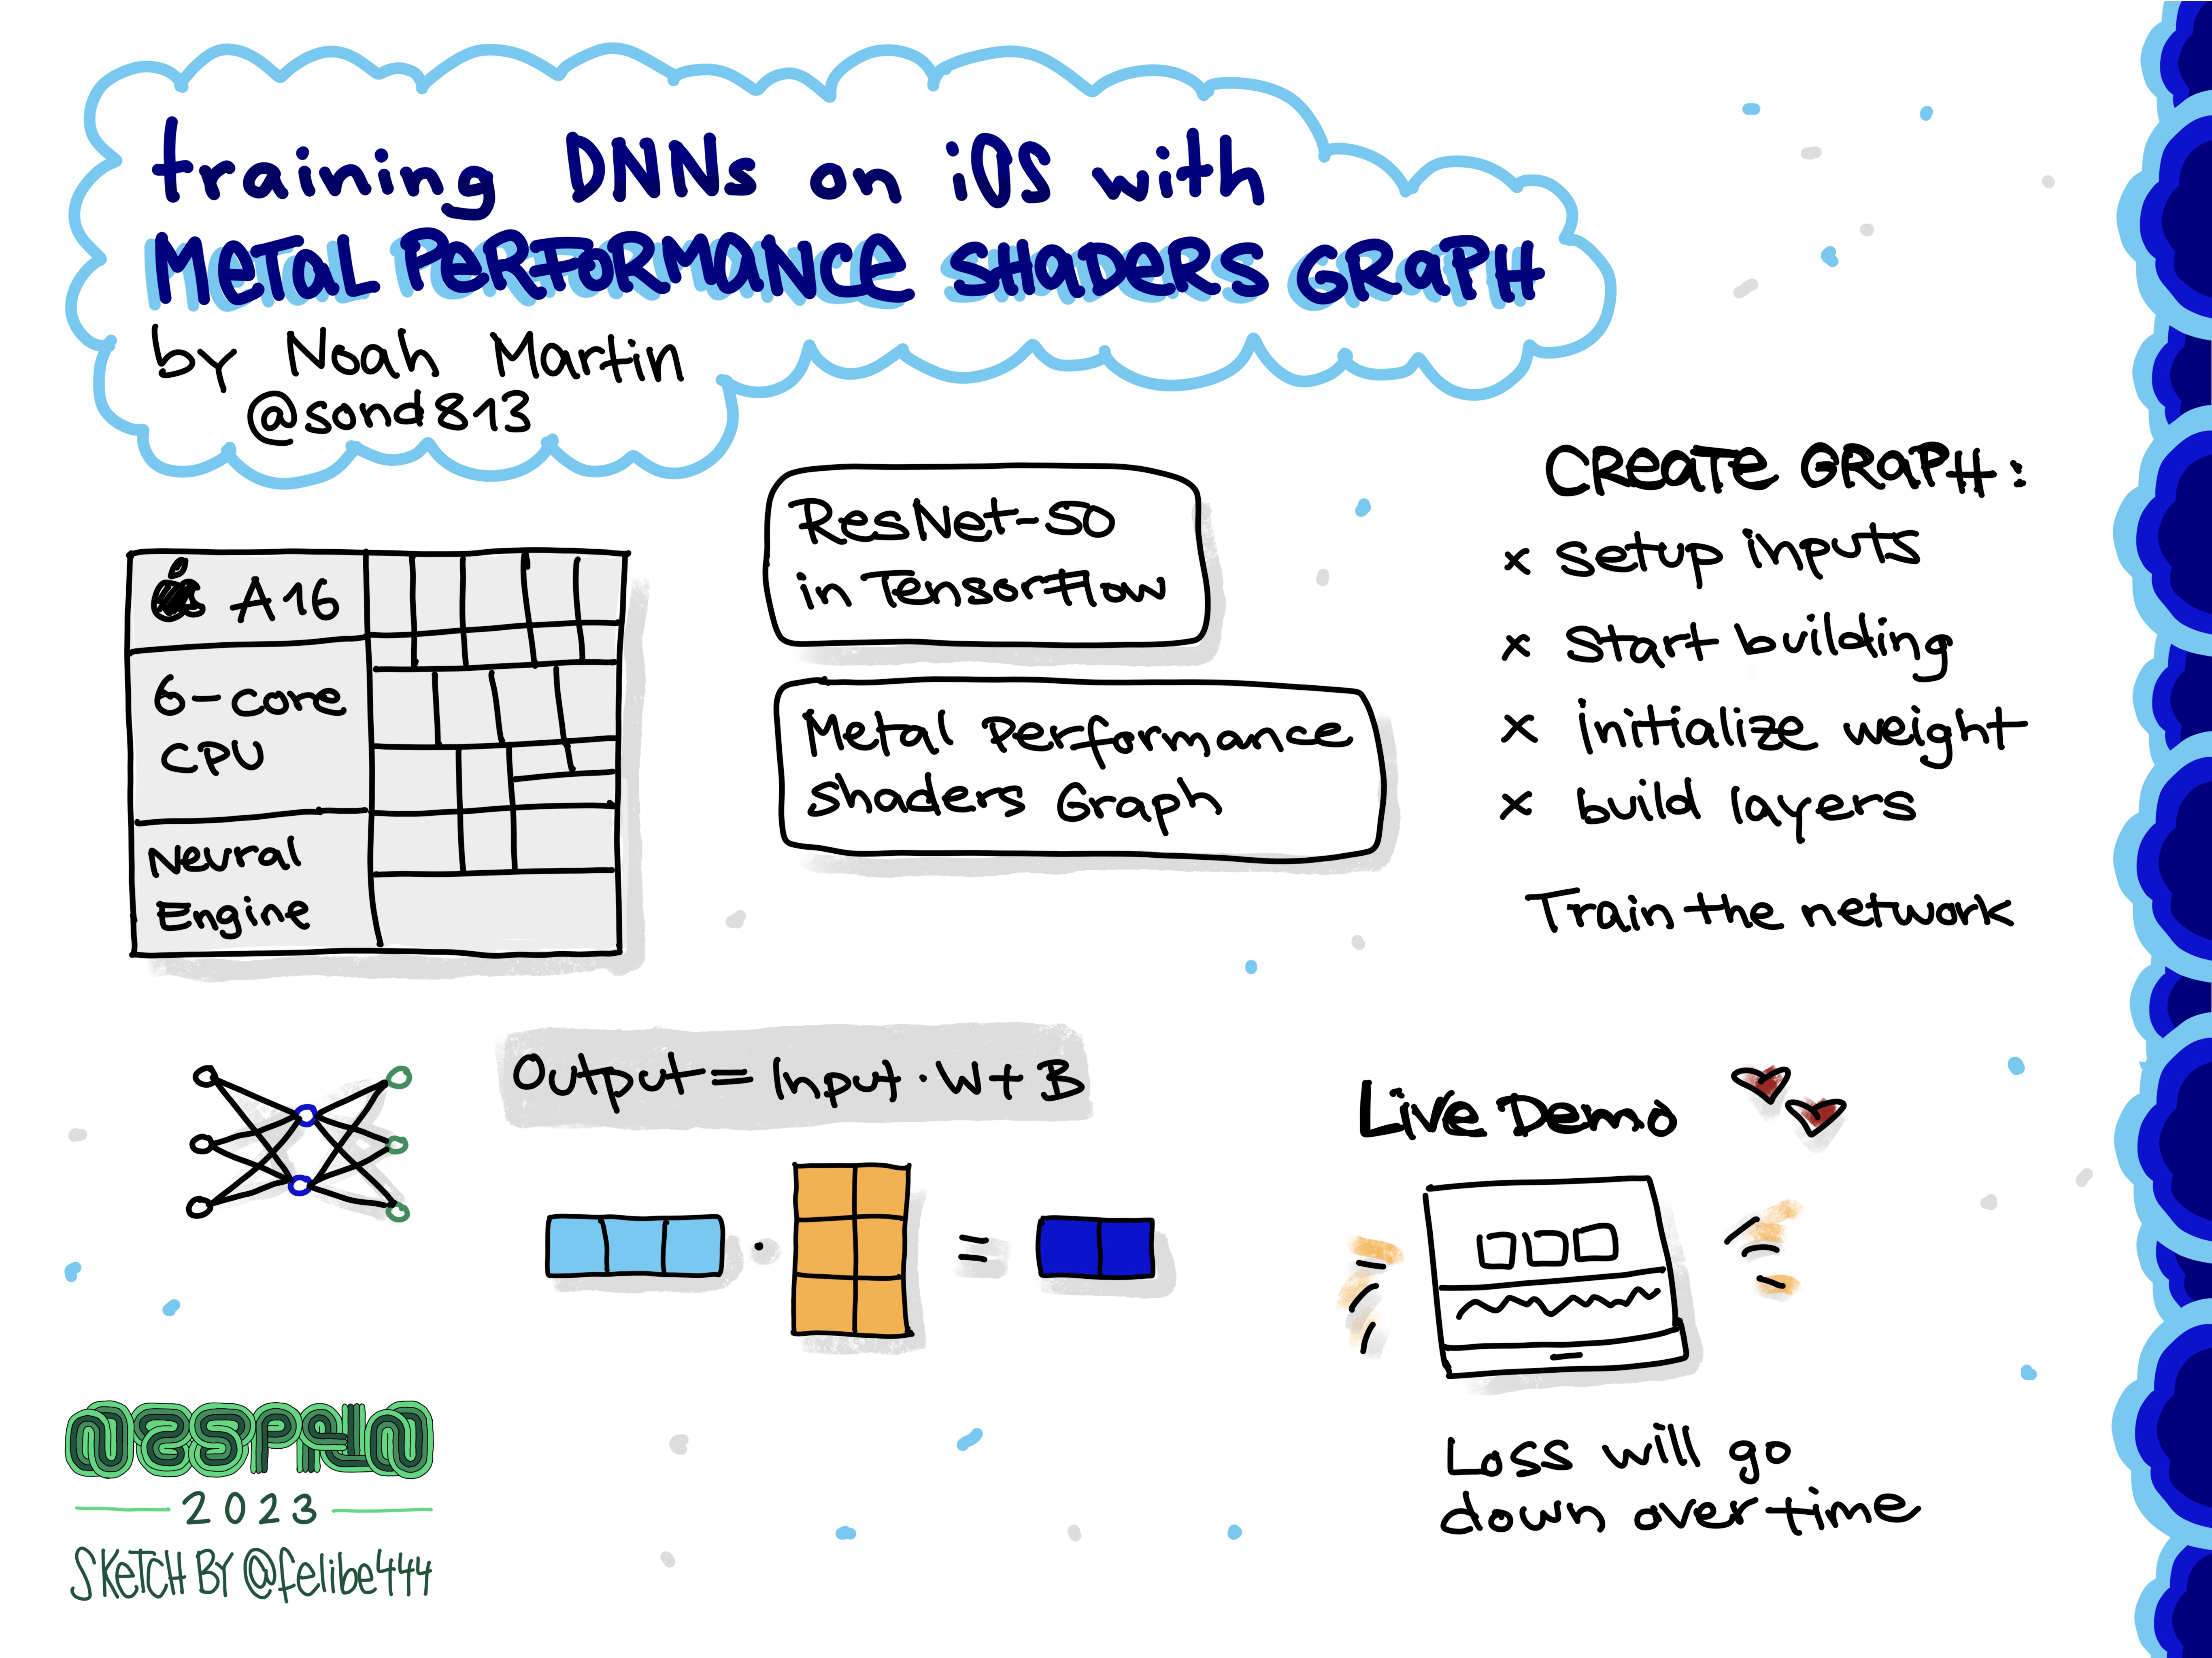 training DNNs on iOS with
METAL PERFORMANCE SHADERS GRAPH
by Noah Martin
@sond813
A16
6-core
CPU
Neural
Engine
ResNet-50
in Tensorflow
Metal Performance
Shaders Graph
CREATE GRAPH:
x setup inputs
x start building
x initialize weight
x build layers
Train the network
Output = Input · W + B
· =
LIVE DEMO
Loss will go
down over time
NSSPAIN
2023
SKETCH BY @felibe444